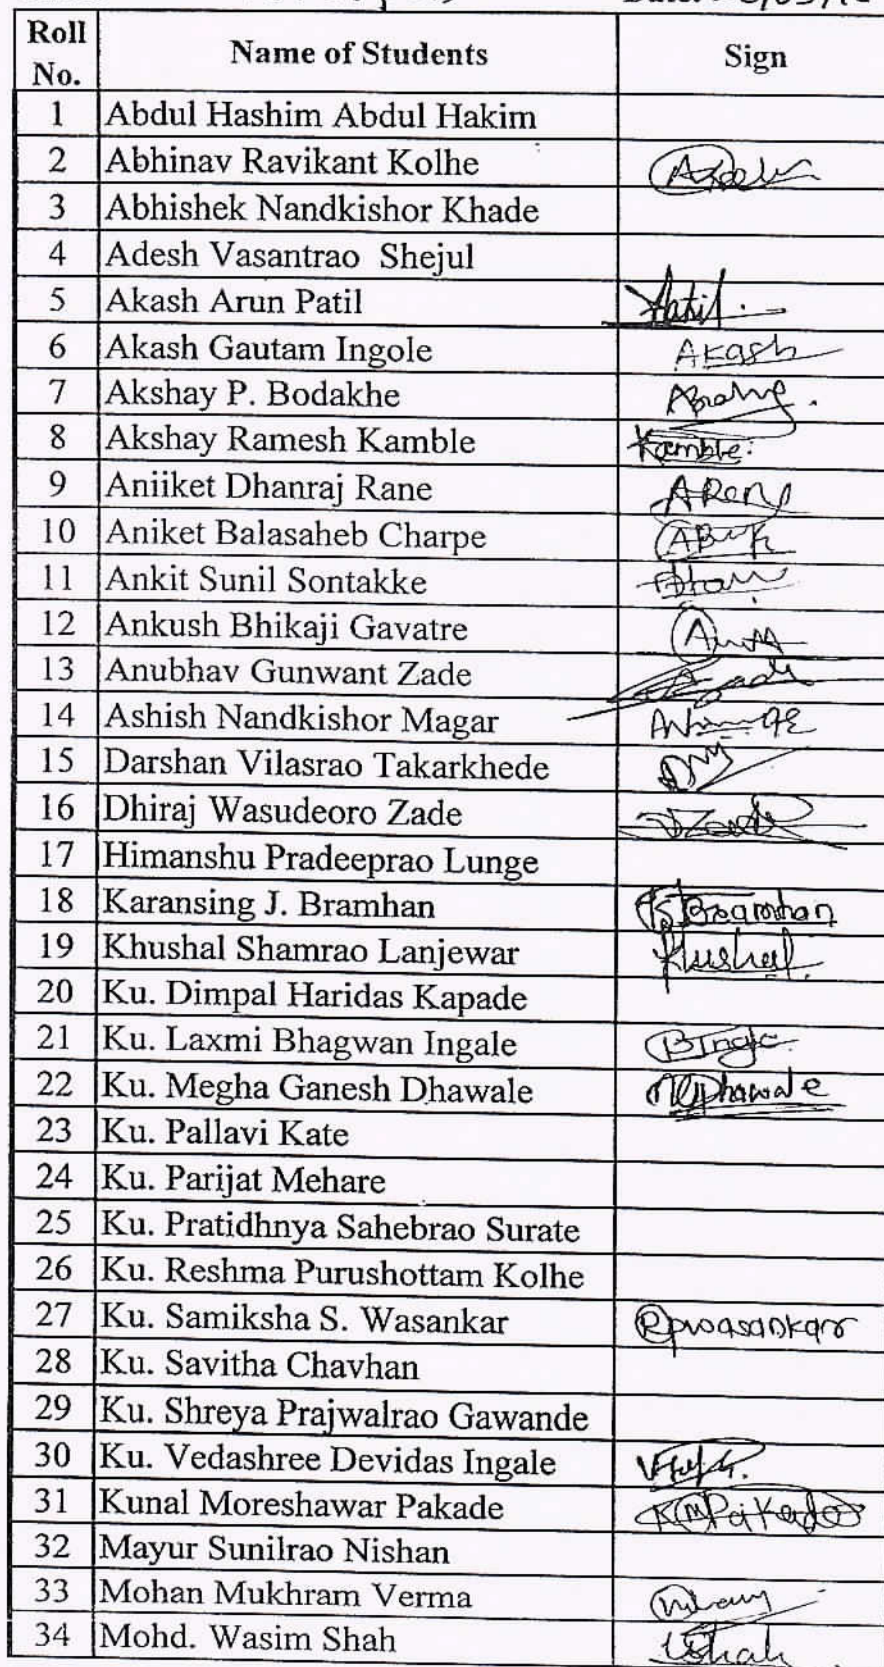 Roll No. Name of Students Sign
1 Abdul Hashim Abdul Hakim
2 Abhinav Ravikant Kolhe
3 Abhishek Nandkishor Khade
4 Adesh Vasantrao Shejul
5 Akash Arun Patil Patil
6 Akash Gautam Ingole Akash
7 Akshay P. Bodakhe
8 Akshay Ramesh Kamble Kamble
9 Aniiket Dhanraj Rane ARane
10 Aniket Balasaheb Charpe
11 Ankit Sunil Sontakke
12 Ankush Bhikaji Gavatre
13 Anubhav Gunwant Zade
14 Ashish Nandkishor Magar
15 Darshan Vilasrao Takarkhede
16 Dhiraj Wasudeoro Zade DZade
17 Himanshu Pradeeprao Lunge
18 Karansing J. Bramhan Bramhan
19 Khushal Shamrao Lanjewar Khushal
20 Ku. Dimpal Haridas Kapade
21 Ku. Laxmi Bhagwan Ingale
22 Ku. Megha Ganesh Dhawale Dhawale
23 Ku. Pallavi Kate
24 Ku. Parijat Mehare
25 Ku. Pratidhnya Sahebrao Surate
26 Ku. Reshma Purushottam Kolhe
27 Ku. Samiksha S. Wasankar Rpwasankar
28 Ku. Savitha Chavhan
29 Ku. Shreya Prajwalrao Gawande
30 Ku. Vedashree Devidas Ingale
31 Kunal Moreshawar Pakade
32 Mayur Sunilrao Nishan
33 Mohan Mukhram Verma
34 Mohd. Wasim Shah